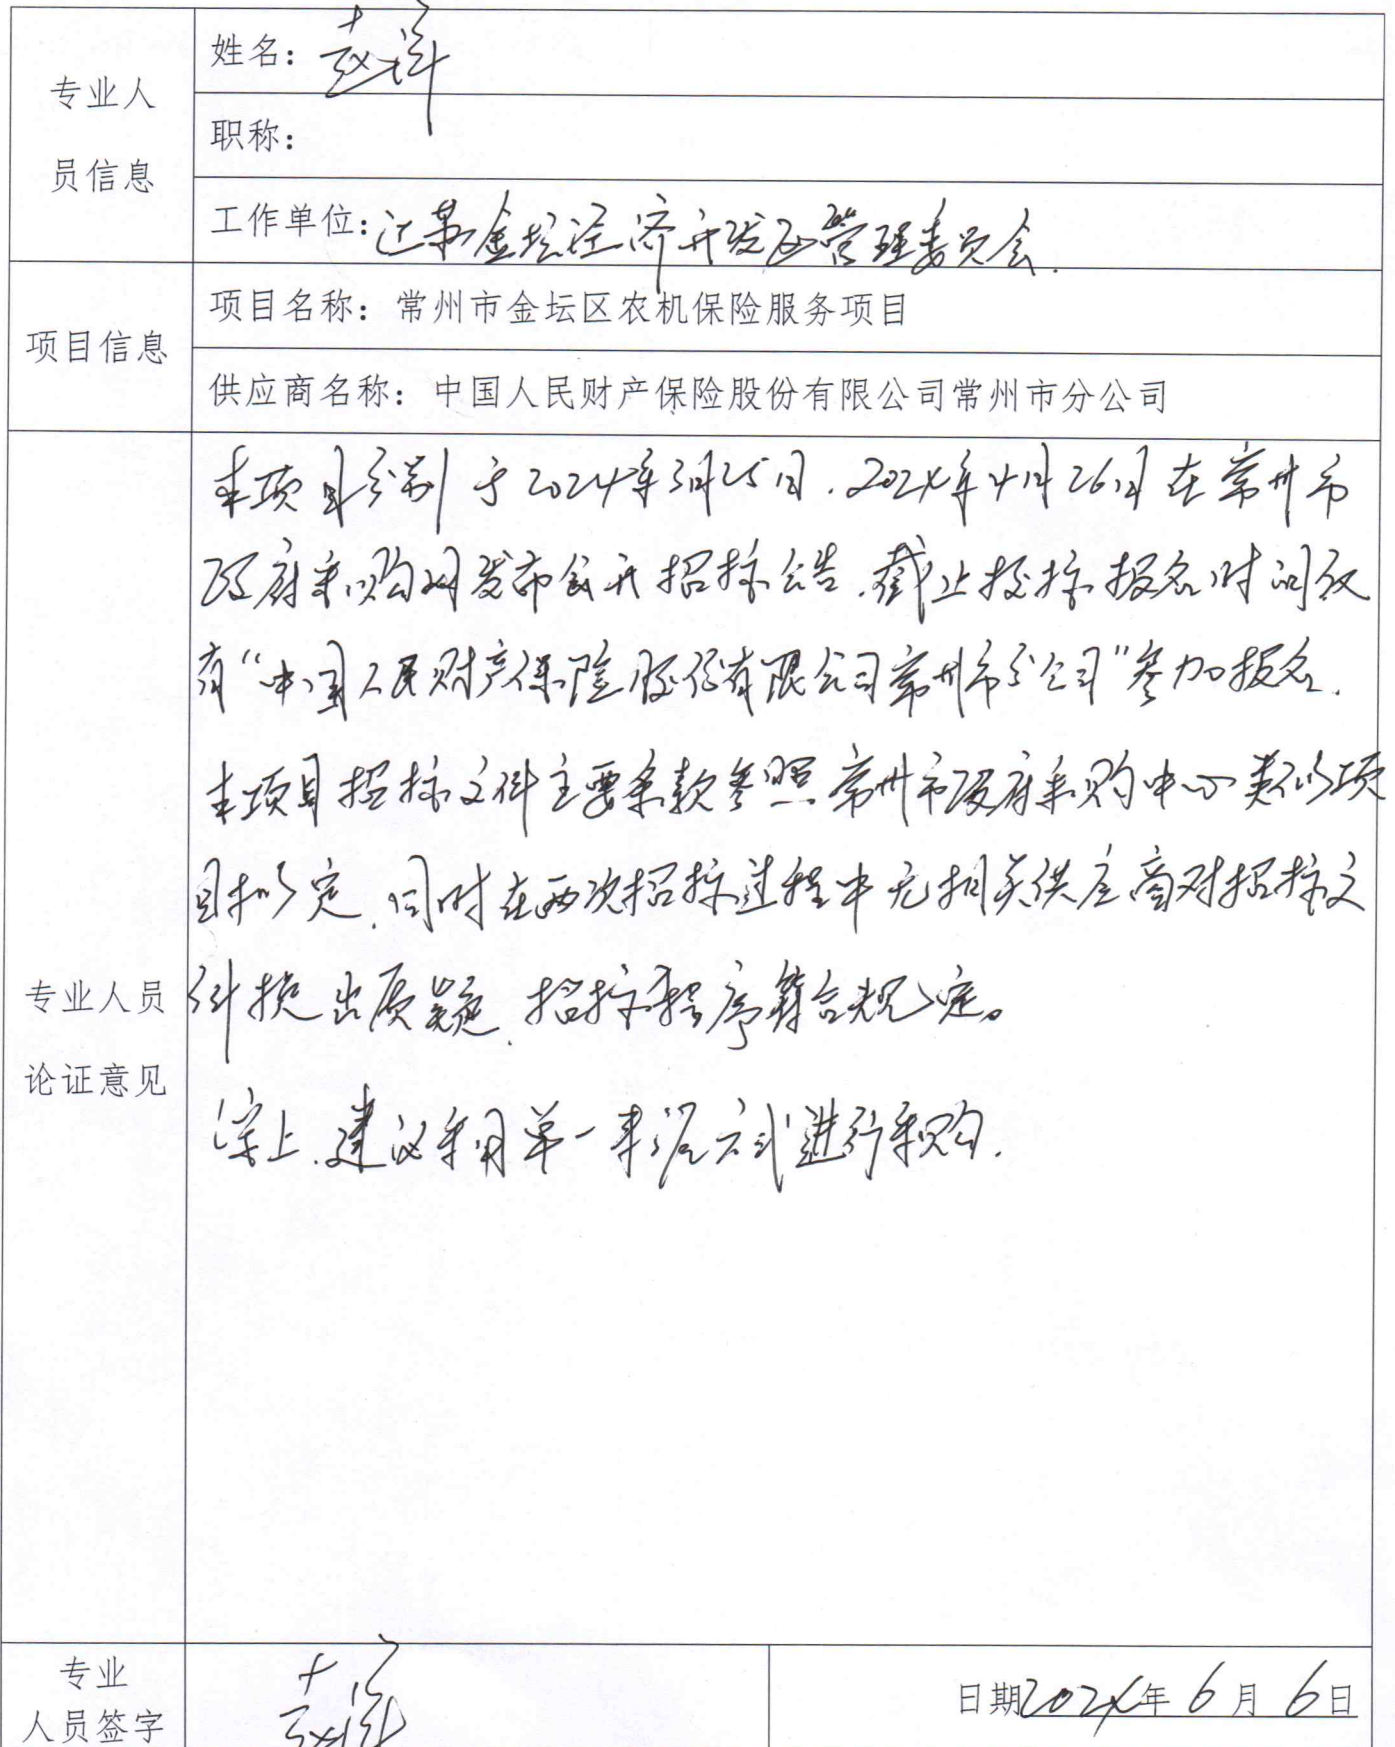 专业人
员信息
姓名：赵祥
职称：
工作单位：江苏金坛经济开发区管理委员会.
项目信息
项目名称：常州市金坛区农机保险服务项目
供应商名称：中国人民财产保险股份有限公司常州市分公司
专业人员
论证意见
本项目分别于2024年3月25日、2024年4月26日在常州市
政府采购网发布公开招标公告，截止投标报名时间仅
有“中国人民财产保险股份有限公司常州市分公司”参加报名.
本项目招标文件主要条款参照常州市政府采购中心类似项
目拟定，同时在两次招标过程中无相关供应商对招标文
件提出质疑，招标程序符合规定。
综上，建议采用单一来源方式进行采购.
专业
人员签字
赵祥
日期2024年6月6日